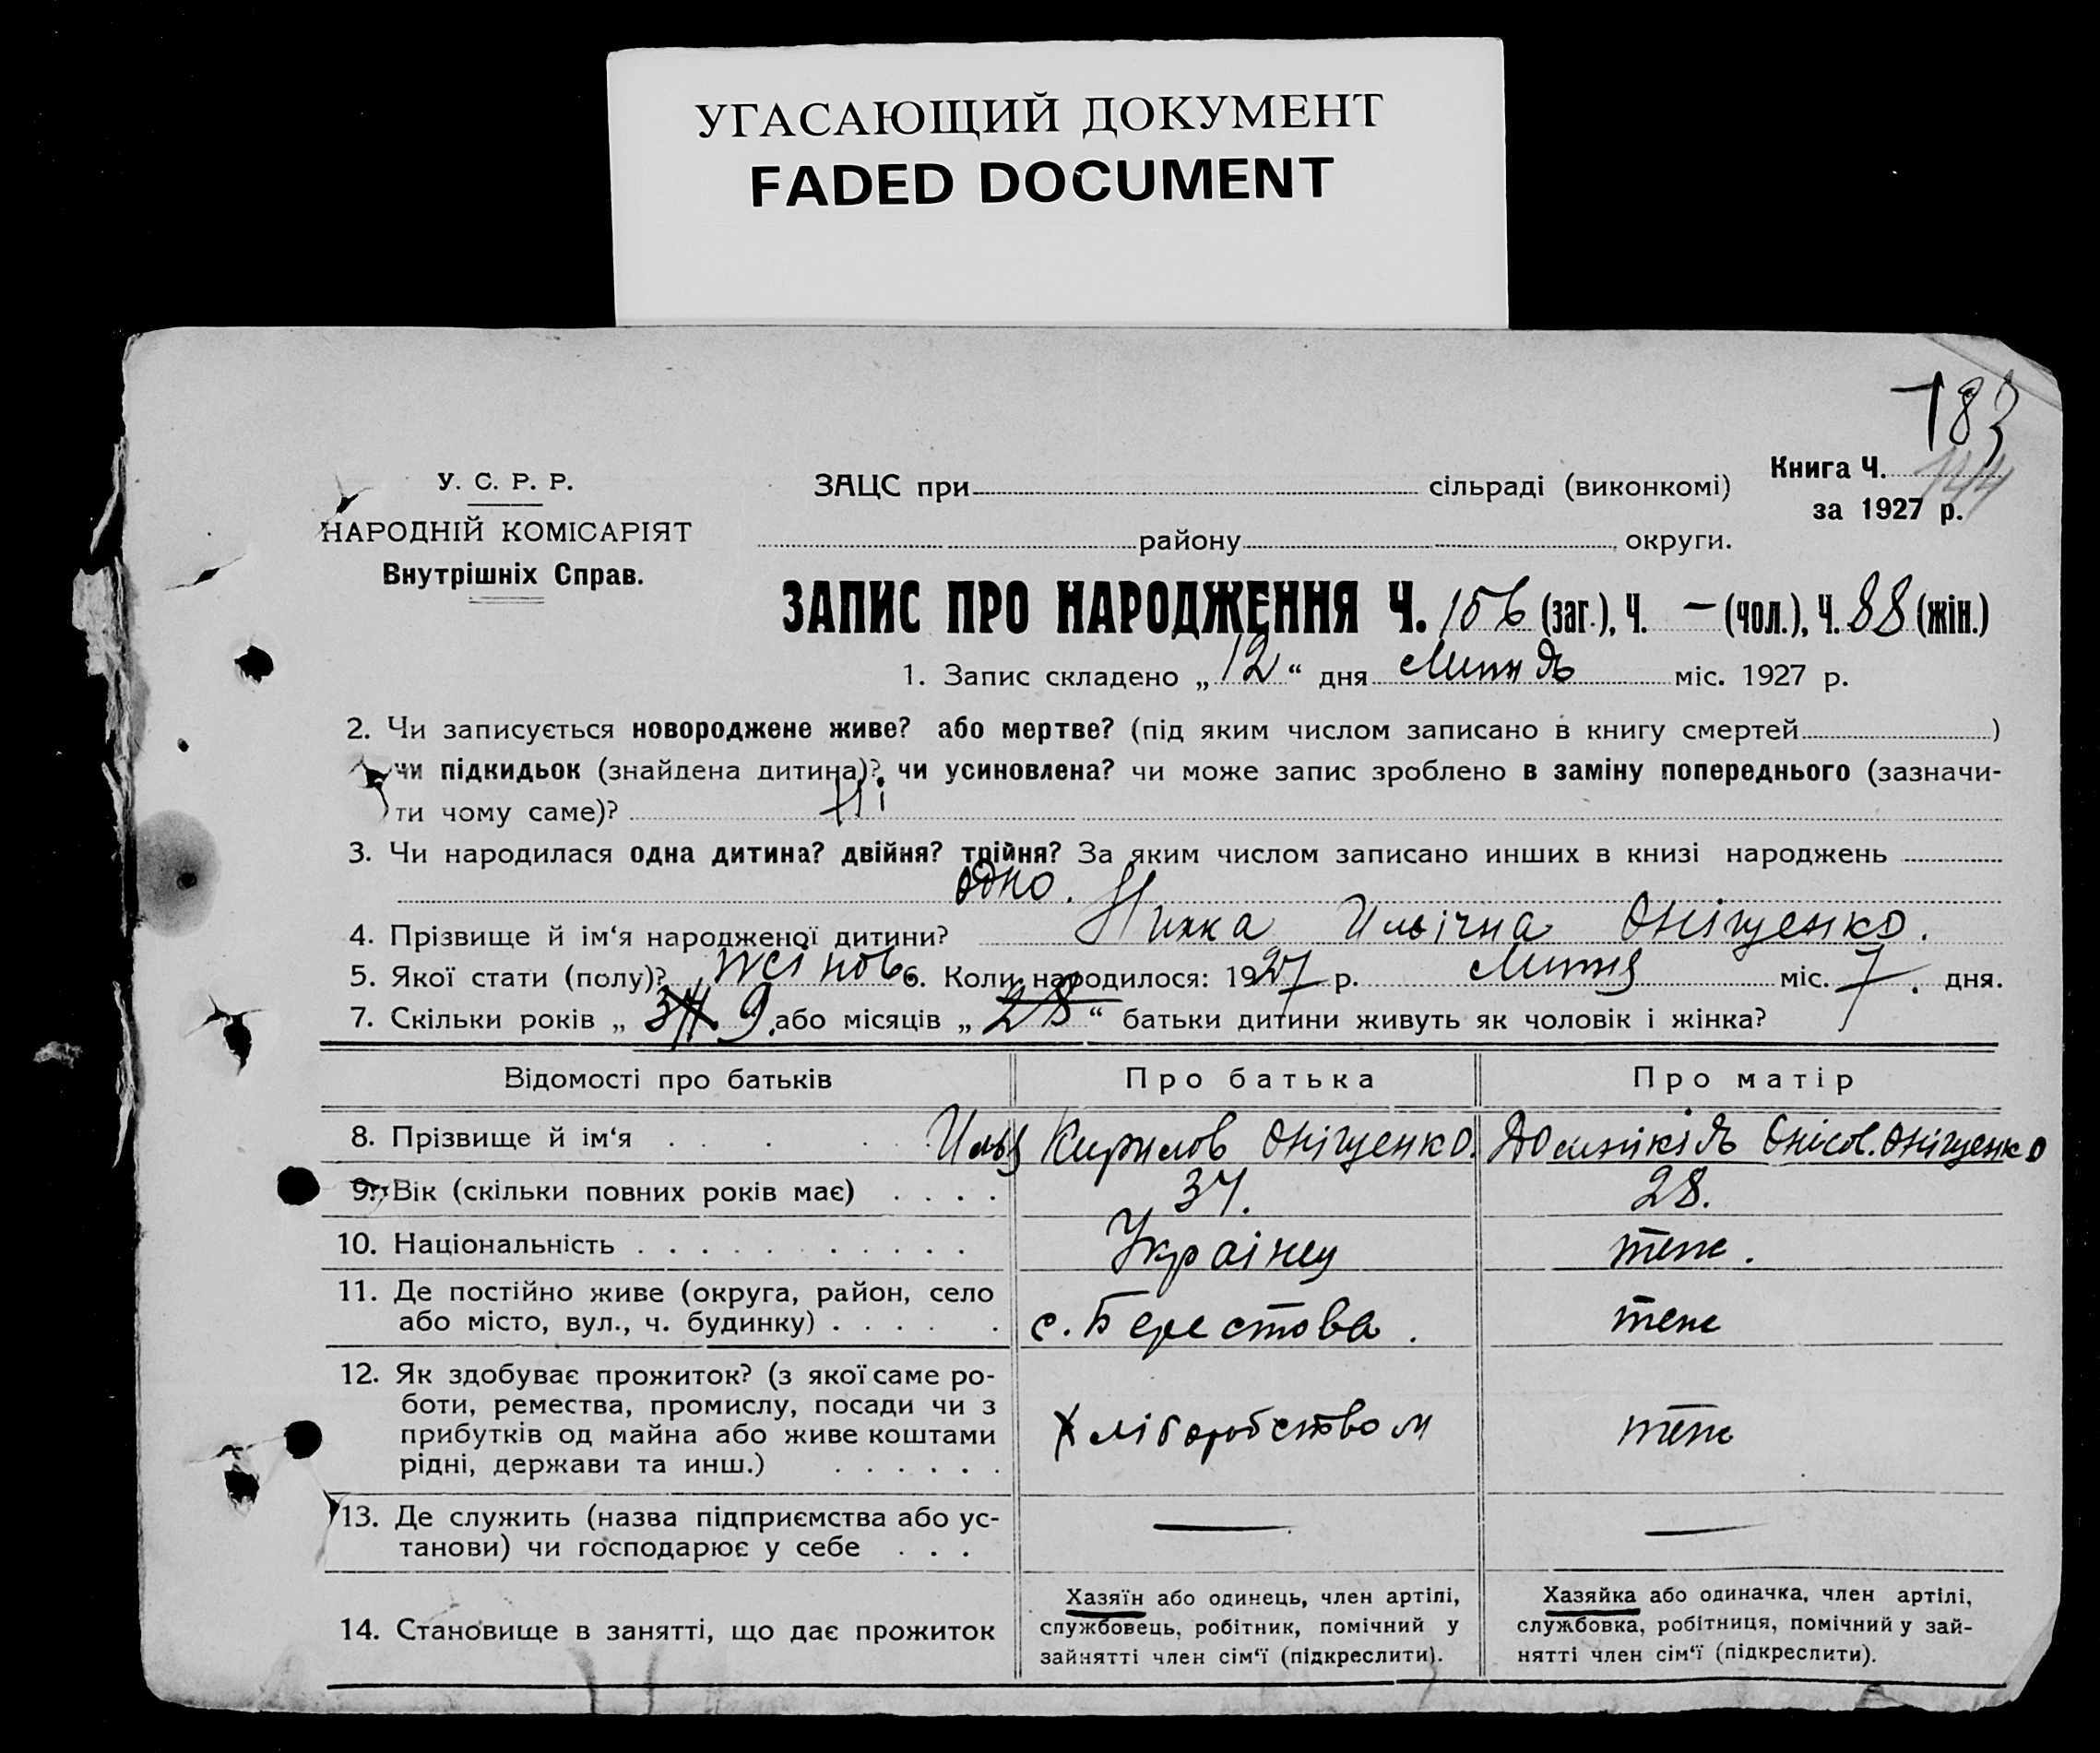 УГАСАЮЩИЙ ДОКУМЕНТ
FADED DOCUMENT
183
144
У. С. Р. Р.
НАРОДНІЙ КОМІСАРІЯТ
Внутрішніх Справ.
ЗАЦС при сільраді (виконкомі)
Книга Ч.
за 1927 р.
району округи.
ЗАПИС ПРО НАРОДЖЕННЯ Ч. 156 (заг.), Ч. — (чол.), Ч. 88 (жін.)
1. Запис складено „ 12 “ дня Липня міс. 1927 р.
2. Чи записується новороджене живе? або мертве? (під яким числом записано в книгу смертей )
чи підкидьок (знайдена дитина)? чи усиновлена? чи може запис зроблено в заміну попереднього (зазначи-
ти чому саме)? Ні
3. Чи народилася одна дитина? двійня? трійня? За яким числом записано инших в книзі народжень
одно.
4. Прізвище й ім‘я народженої дитини? Нинка Ильічна Оніщенко.
5. Якої стати (полу)? жінов 6. Коли народилося: 1927 р. Липня міс. 7. дня.
7. Скільки років „ 34 9. або місяців „ 28 “ батьки дитини живуть як чоловік і жінка?
Відомості про батьків Про батька Про матір
8. Прізвище й ім‘я . . . Илья Кирилов Оніщенко. Домникія Онісов. Оніщенко
9. Вік (скільки повних років має) . . . . 34. 28.
10. Національність . . . . . . . . . . . Українец теже.
11. Де постійно живе (округа, район, село
або місто, вул., ч. будинку) . . . . . с. Берестова. теже
12. Як здобуває прожиток? (з якої саме ро-
боти, ремества, промислу, посади чи з
прибутків од майна або живе коштами
рідні, держави та инш.) . . . . . . Хліборобством теже
13. Де служить (назва підприємства або ус-
танови) чи господарює у себе . . . — —
14. Становище в занятті, що дає прожиток
Хазяїн або одинець, член артілі,
службовець, робітник, помічний у
зайнятті член сім‘ї (підкреслити).
Хазяйка або одиначка, член артілі,
службовка, робітниця, помічний у зай-
нятті член сім‘ї (підкреслити).